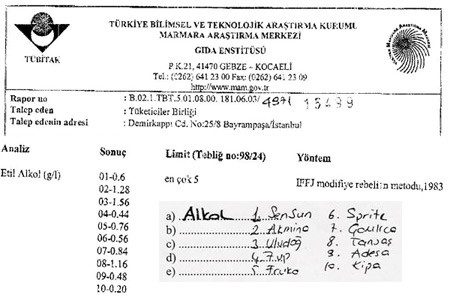 TÜRKİYE BİLİMSEL VE TEKNOLOJİK ARAŞTIRMA KURUMU
MARMARA ARAŞTIRMA MERKEZİ
GIDA ENSTİTÜSÜ
P.K.21, 41470 GEBZE - KOCAELİ
Tel.: (0262) 641 23 00 Fax: (0262) 641 23 09
http://www.mam.gov.tr
TÜBİTAK
Rapor no : B.02.1.TBT.5.01.08.00. 181.06.03/ 4971 15499
Talep eden : Tüketiciler Birliği
Talep edenin adresi : Demirkapı Cd. No:25/8 Bayrampaşa/İstanbul
Analiz Sonuç Limit (Tebliğ no:98/24) Yöntem
Etil Alkol (g/l) 01-0.6 en çok 5 IFFJ modifiye rebelin metodu,1983
02-1.28
03-1.56
04-0.44
05-0.76
06-0.56
07-0.84
08-1.16
09-0.48
10-0.20
a) Alkol 1. Sensun 6. Sprite
b) 2. Akmina 7.
c) 3. Uludağ 8. Tansaş
d) 4. 7up 9. Adesa
e) 5. Fruko 10. Kipa